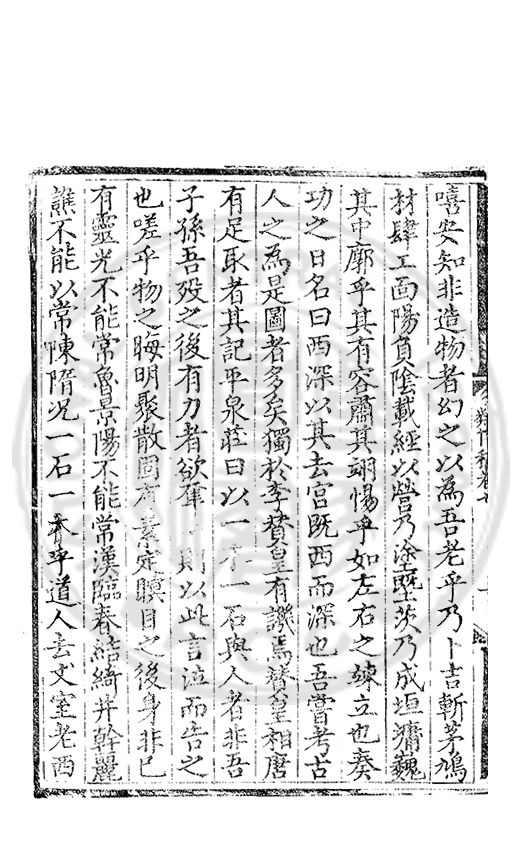 嘻安知非造物者幻之以為吾老乎乃卜吉斬茅鳩
材肆工面陽負陰載經以營乃塗塈茨乃成垣墉巍
其中廓乎其有容肅其翊惕乎如左右之竦立也奏
功之日名曰西深以其去宮既西而深也吾嘗考古
人之為是圖者多矣獨於李贊皇有譏焉贊皇相唐
有足取者其記平泉莊曰以一木一石與人者非吾
子孫吾歿之後有力者欲奪則以此言泣而告之
也嗟乎物之晦明聚散固有素定瞑目之後身非己
有靈光不能常魯景陽不能常漢臨春結綺井幹麗
譙不能以常陳隋况一石一木乎道人去丈室老西